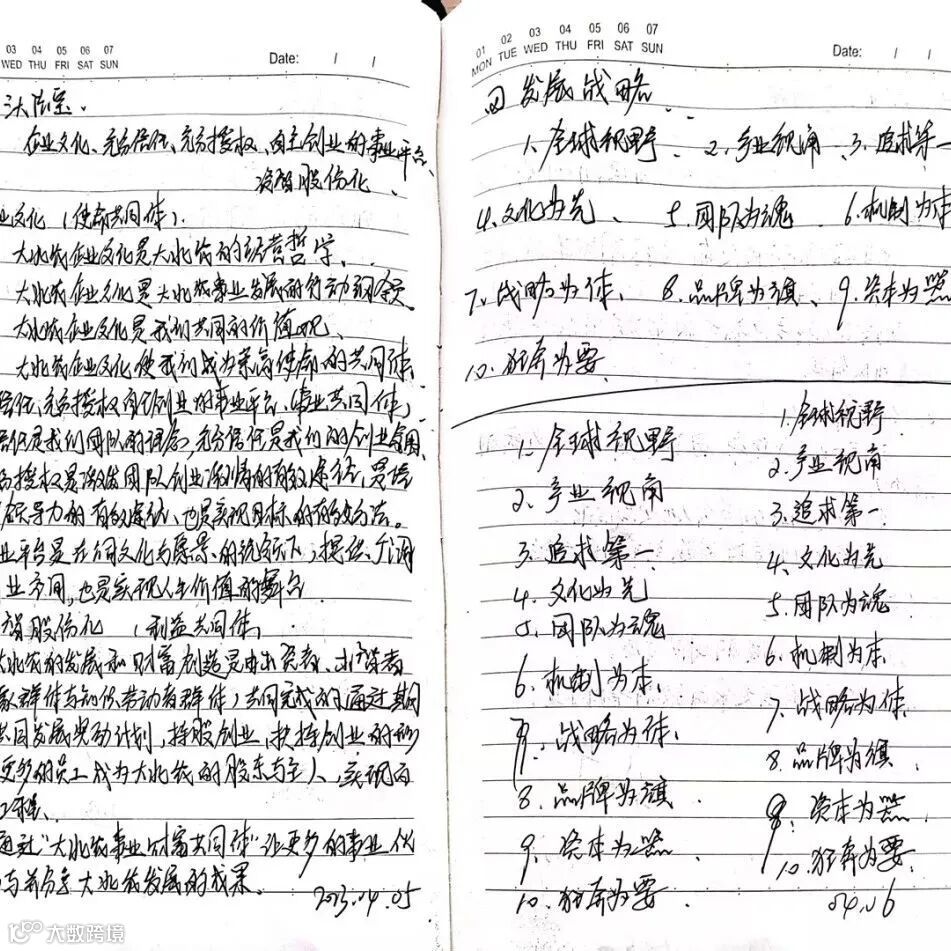 03 04 05 06 07
WED THU FRI SAT SUN
Date: / /
三大法宝.
企业文化、充分信任、充分授权、自主创业的事业平台、
资智股份化、
业文化（使命共同体）.
大北农企业文化是大北农的经营哲学、
大北农企业文化是大北农事业发展的行动纲领
大北农企业文化是我们共同的价值观、
大北农企业文化使我们成为崇高使命的共同体、
信任、充分授权自主创业的事业平台、（事业共同体）
信任是我们团队的理念，充分信任是我们的创业氛围
分授权是激发团队创业激情的有效途径、是培
领导力的有效途径、也是实现目标的有效方法。
业平台是在共同文化与愿景的统领下，提供一个
业空间，也是实现人生价值的舞台
智股份化（利益共同体）
大北农的发展和财富创造是由出资者、出智者
群体与知识劳动者群体）共同完成的，通过
共同发展奖励计划，持股创业，扶持创业的形
更多的员工成为大北农的股东与主人、实现百
工程、
通过"大北农事业财富共同体"让更多的事业伙
与并分享大北农发展的成果。
2023.04.05
01 02 03 04 05 06 07
MON TUE WED THU FRI SAT SUN
Date: / /
四 发展战略
1、全球视野、 2、产业视角、 3、追求第一
4、文化为先、 5、团队为魂 6、机制为本
7、战略为体、 8、品牌为旗、 9、资本为器
10、狂奔为要
1、全球视野
2、产业视角
3、追求第一
4、文化为先
5、团队为魂
6、机制为本、
7、战略为体、
8、品牌为旗、
9、资本为器
10、狂奔为要、
1、全球视野
2、产业视角
3、追求第一
4、文化为先
5、团队为魂
6、机制为本
7、战略为体、
8、品牌为旗、
9、资本为器、
10、狂奔为要、
04.06
大数跨境